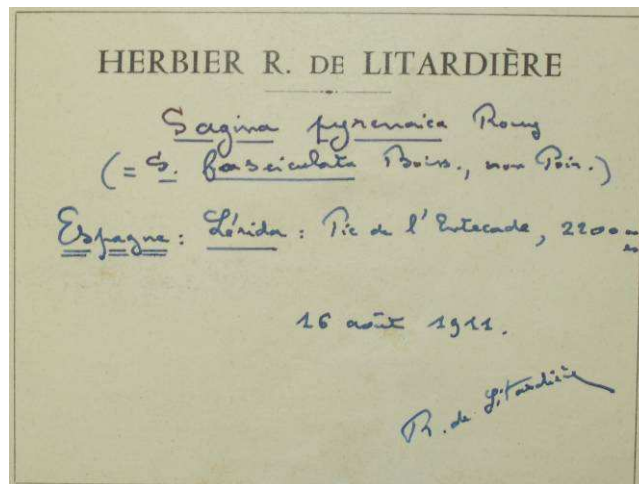 HERBIER R. DE LITARDIÈRE
Sagina pyrenaica Rouy
(= S. fasciculata Boiss., non Poir.)
Espagne : Lérida : Pic de l'Entecade, 2200 m
16 août 1911.
R. de Litardière